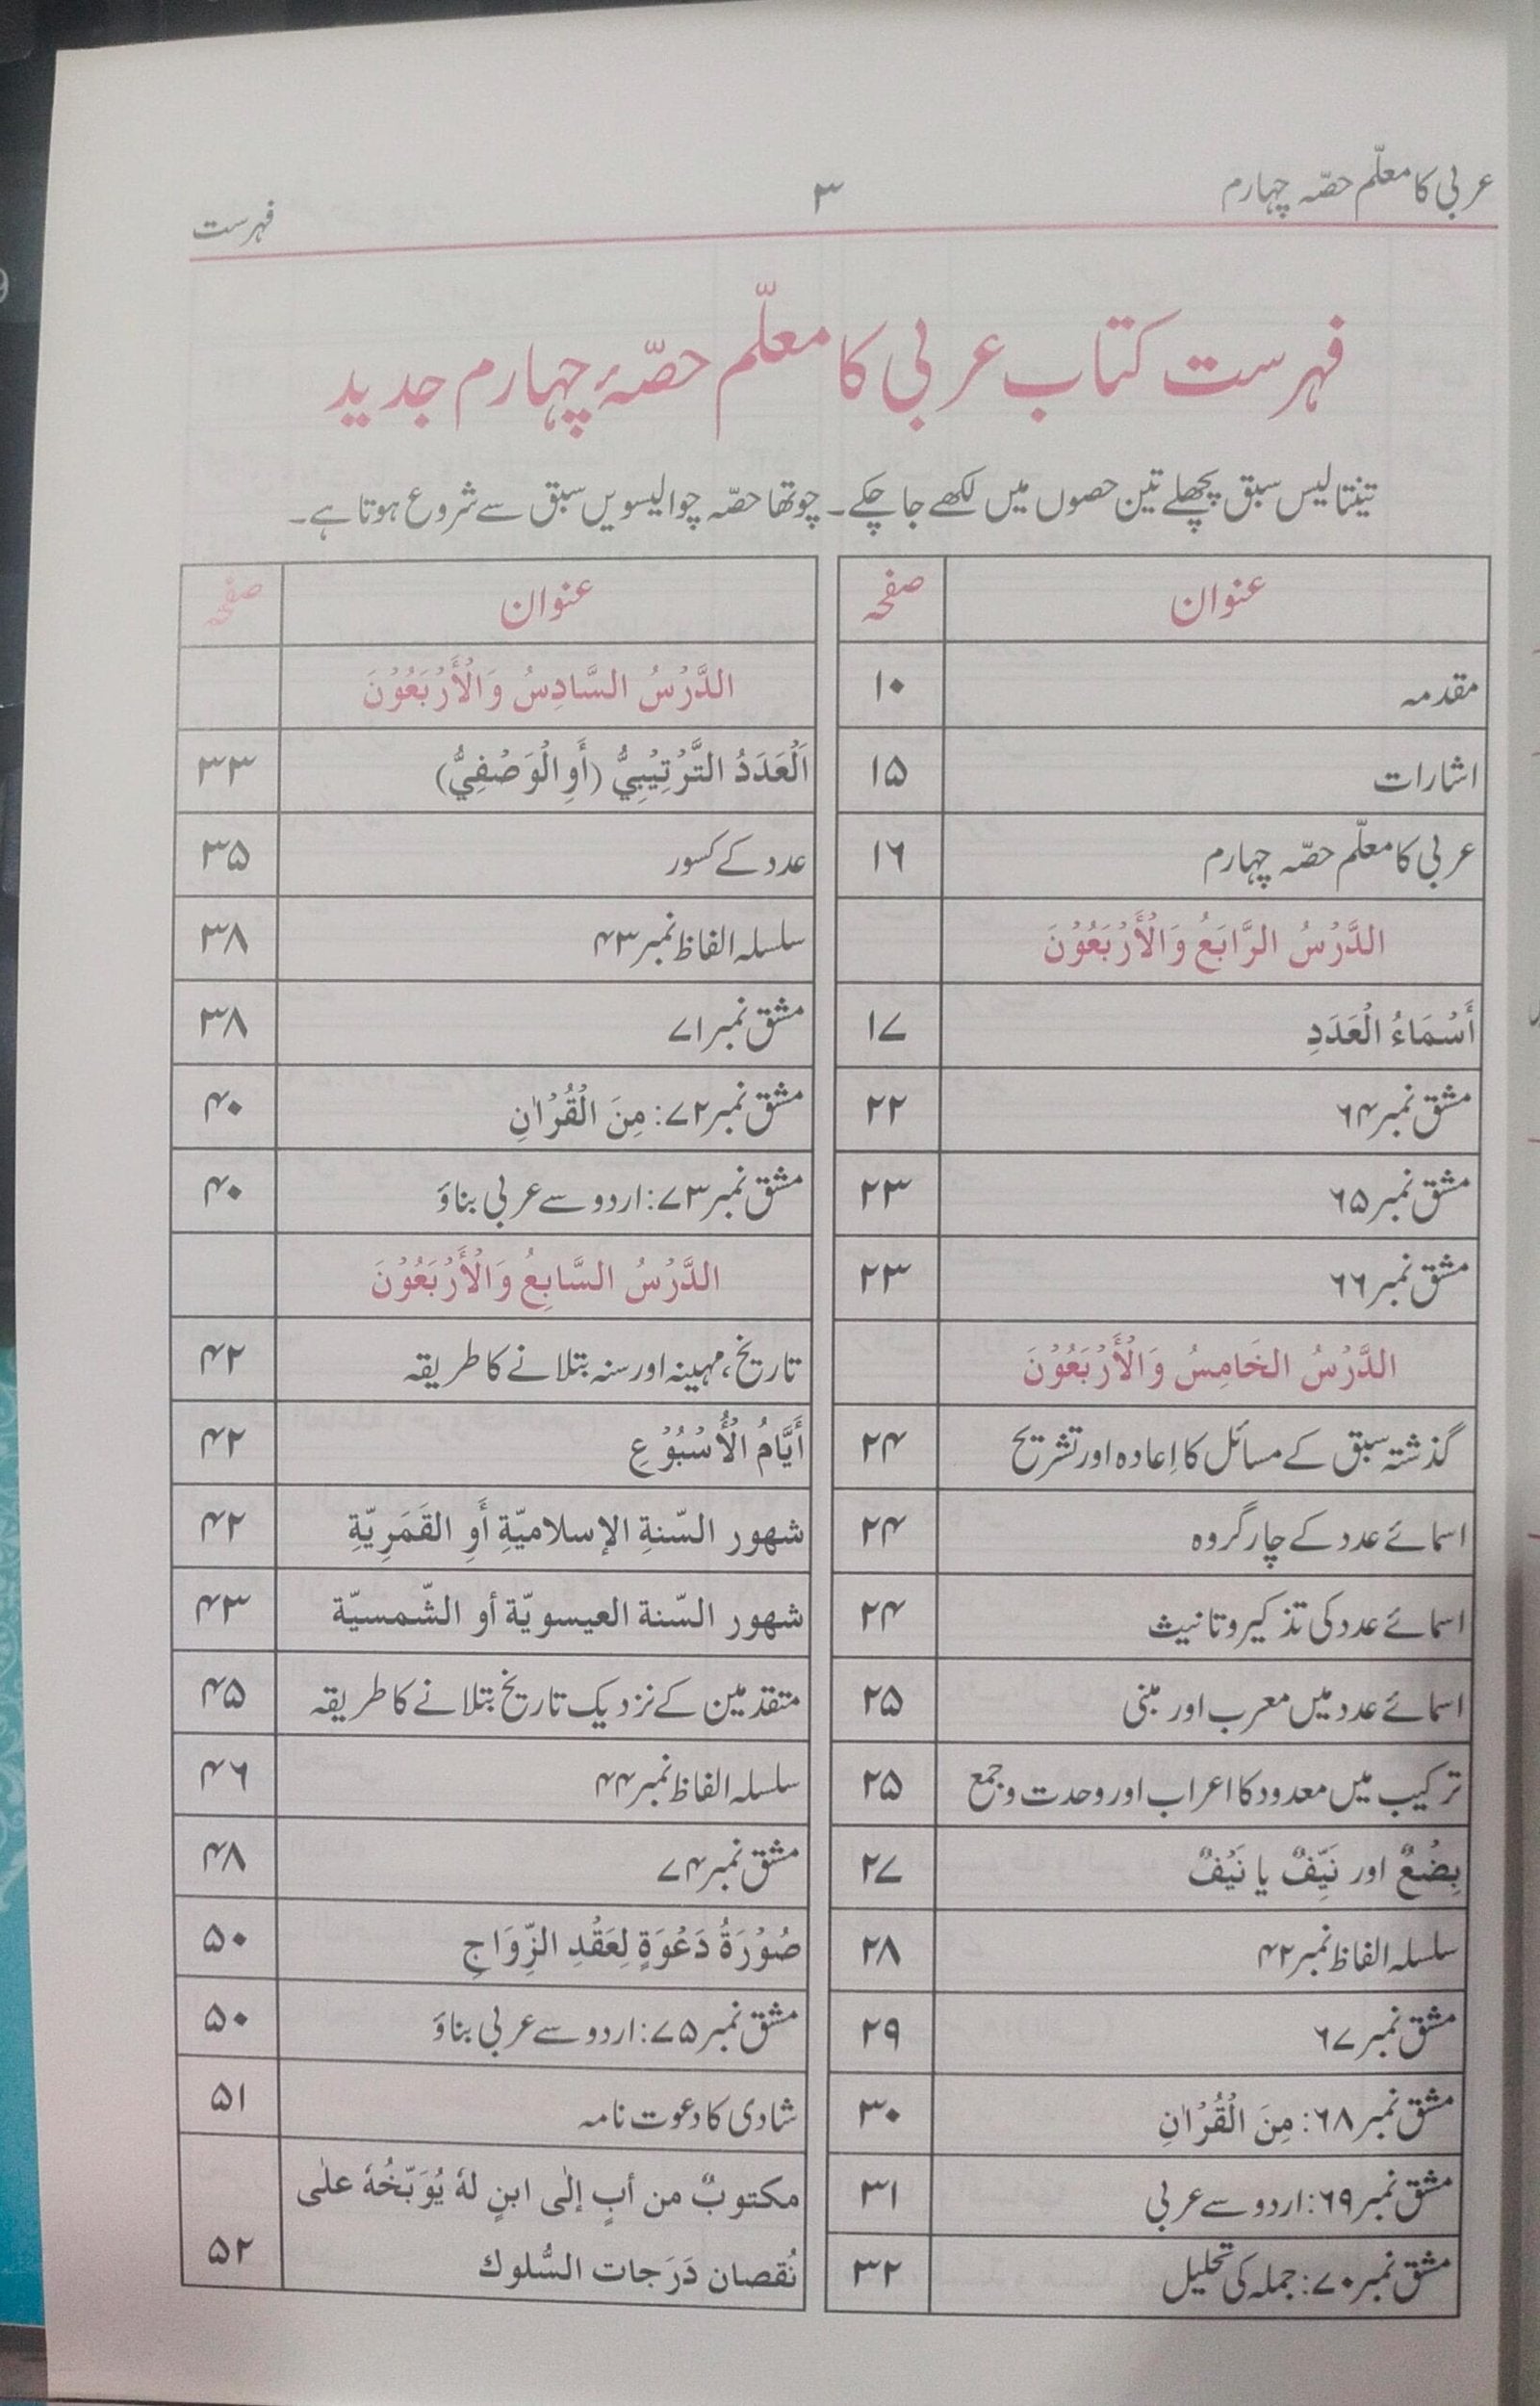 عربی کا معلّم حصّہ چہارم
۳
فہرست
فہرست کتاب عربی کا معلّم حصّۂ چہارم جدید
تینتالیس سبق پچھلے تین حصوں میں لکھے جا چکے۔ چوتھا حصّہ چوالیسویں سبق سے شروع ہوتا ہے۔
عنوان صفحہ
مقدمہ ۱۰
اشارات ۱۵
عربی کا معلّم حصّہ چہارم ۱۶
الدَّرْسُ الرَّابَعُ وَالْأَرْبَعُوْنَ
أَسْمَاءُ الْعَدَدِ ۱۷
مشق نمبر ۶۴ ۲۲
مشق نمبر ۶۵ ۲۳
مشق نمبر ۶۶ ۲۳
الدَّرْسُ الخَامِسُ وَالْأَرْبَعُوْنَ
گذشتہ سبق کے مسائل کا اِعادہ اور تشریح ۲۴
اسمائے عدد کے چار گروہ ۲۴
اسمائے عدد کی تذکیر و تانیث ۲۴
اسمائے عدد میں معرب اور مبنی ۲۵
ترکیب میں معدود کا اعراب اور وحدت و جمع ۲۵
بِضْعٌ اور نَیِّفٌ یا نَیْفٌ ۲۷
سلسلہ الفاظ نمبر ۴۲ ۲۸
مشق نمبر ۶۷ ۲۹
مشق نمبر ۶۸: مِنَ الْقُرْاٰنِ ۳۰
مشق نمبر ۶۹: اردو سے عربی ۳۱
مشق نمبر ۷۰: جملہ کی تحلیل ۳۲
عنوان صفحہ
الدَّرْسُ السَّادِسُ وَالْأَرْبَعُوْنَ
اَلْعَدَدُ التَّرْتِيْبِيُّ (أَوِ الْوَصْفِيُّ) ۳۳
عدد کے کسور ۳۵
سلسلہ الفاظ نمبر ۴۳ ۳۸
مشق نمبر ۷۱ ۳۸
مشق نمبر ۷۲: مِنَ الْقُرْاٰنِ ۴۰
مشق نمبر ۷۳: اردو سے عربی بناؤ ۴۰
الدَّرْسُ السَّابِعُ وَالْأَرْبَعُوْنَ
تاریخ، مہینہ اور سنہ بتلانے کا طریقہ ۴۲
أَيَّامُ الْأُسْبُوْعِ ۴۲
شهور السّنةِ الإسلاميّةِ أَوِ القَمَرِيّةِ ۴۲
شهور السّنة العيسويّة أو الشّمسيّة ۴۳
متقدمین کے نزدیک تاریخ بتلانے کا طریقہ ۴۵
سلسلہ الفاظ نمبر ۴۴ ۴۶
مشق نمبر ۷۴ ۴۸
صُوْرَةُ دَعْوَةٍ لِعَقْدِ الزِّوَاجِ ۵۰
مشق نمبر ۷۵: اردو سے عربی بناؤ ۵۰
شادی کا دعوت نامہ ۵۱
مكتوبٌ من أبٍ إلٰى ابنٍ لهٗ يُوَبّخُهٗ علٰى
نُقصان دَرَجات السُّلوك ۵۲